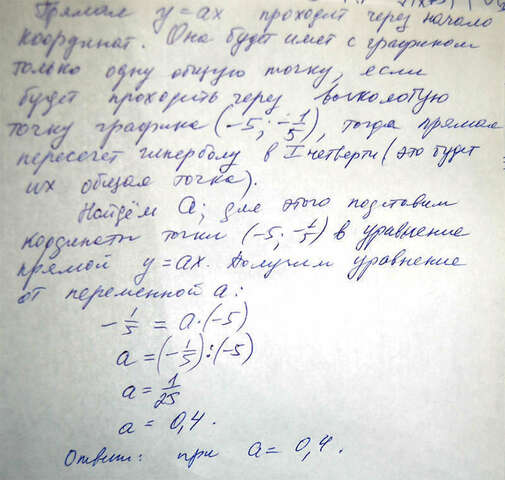 Прямая y=ax проходит через начало
координат. Она будет имет с графиком
только одну общую точку, если
будет проходить через выколотую
точку графика (-5; -1/5), тогда прямая
пересечет гиперболу в I четверти (это будет
их общая точка).
Найдём a; для этого подставим
координаты точки (-5; -1/5) в уравнение
прямой y=ax. Получим уравнение
от переменной a:
-1/5 = a·(-5)
a = (-1/5):(-5)
a = 1/25
a = 0,4.
Ответ: при a = 0,4.